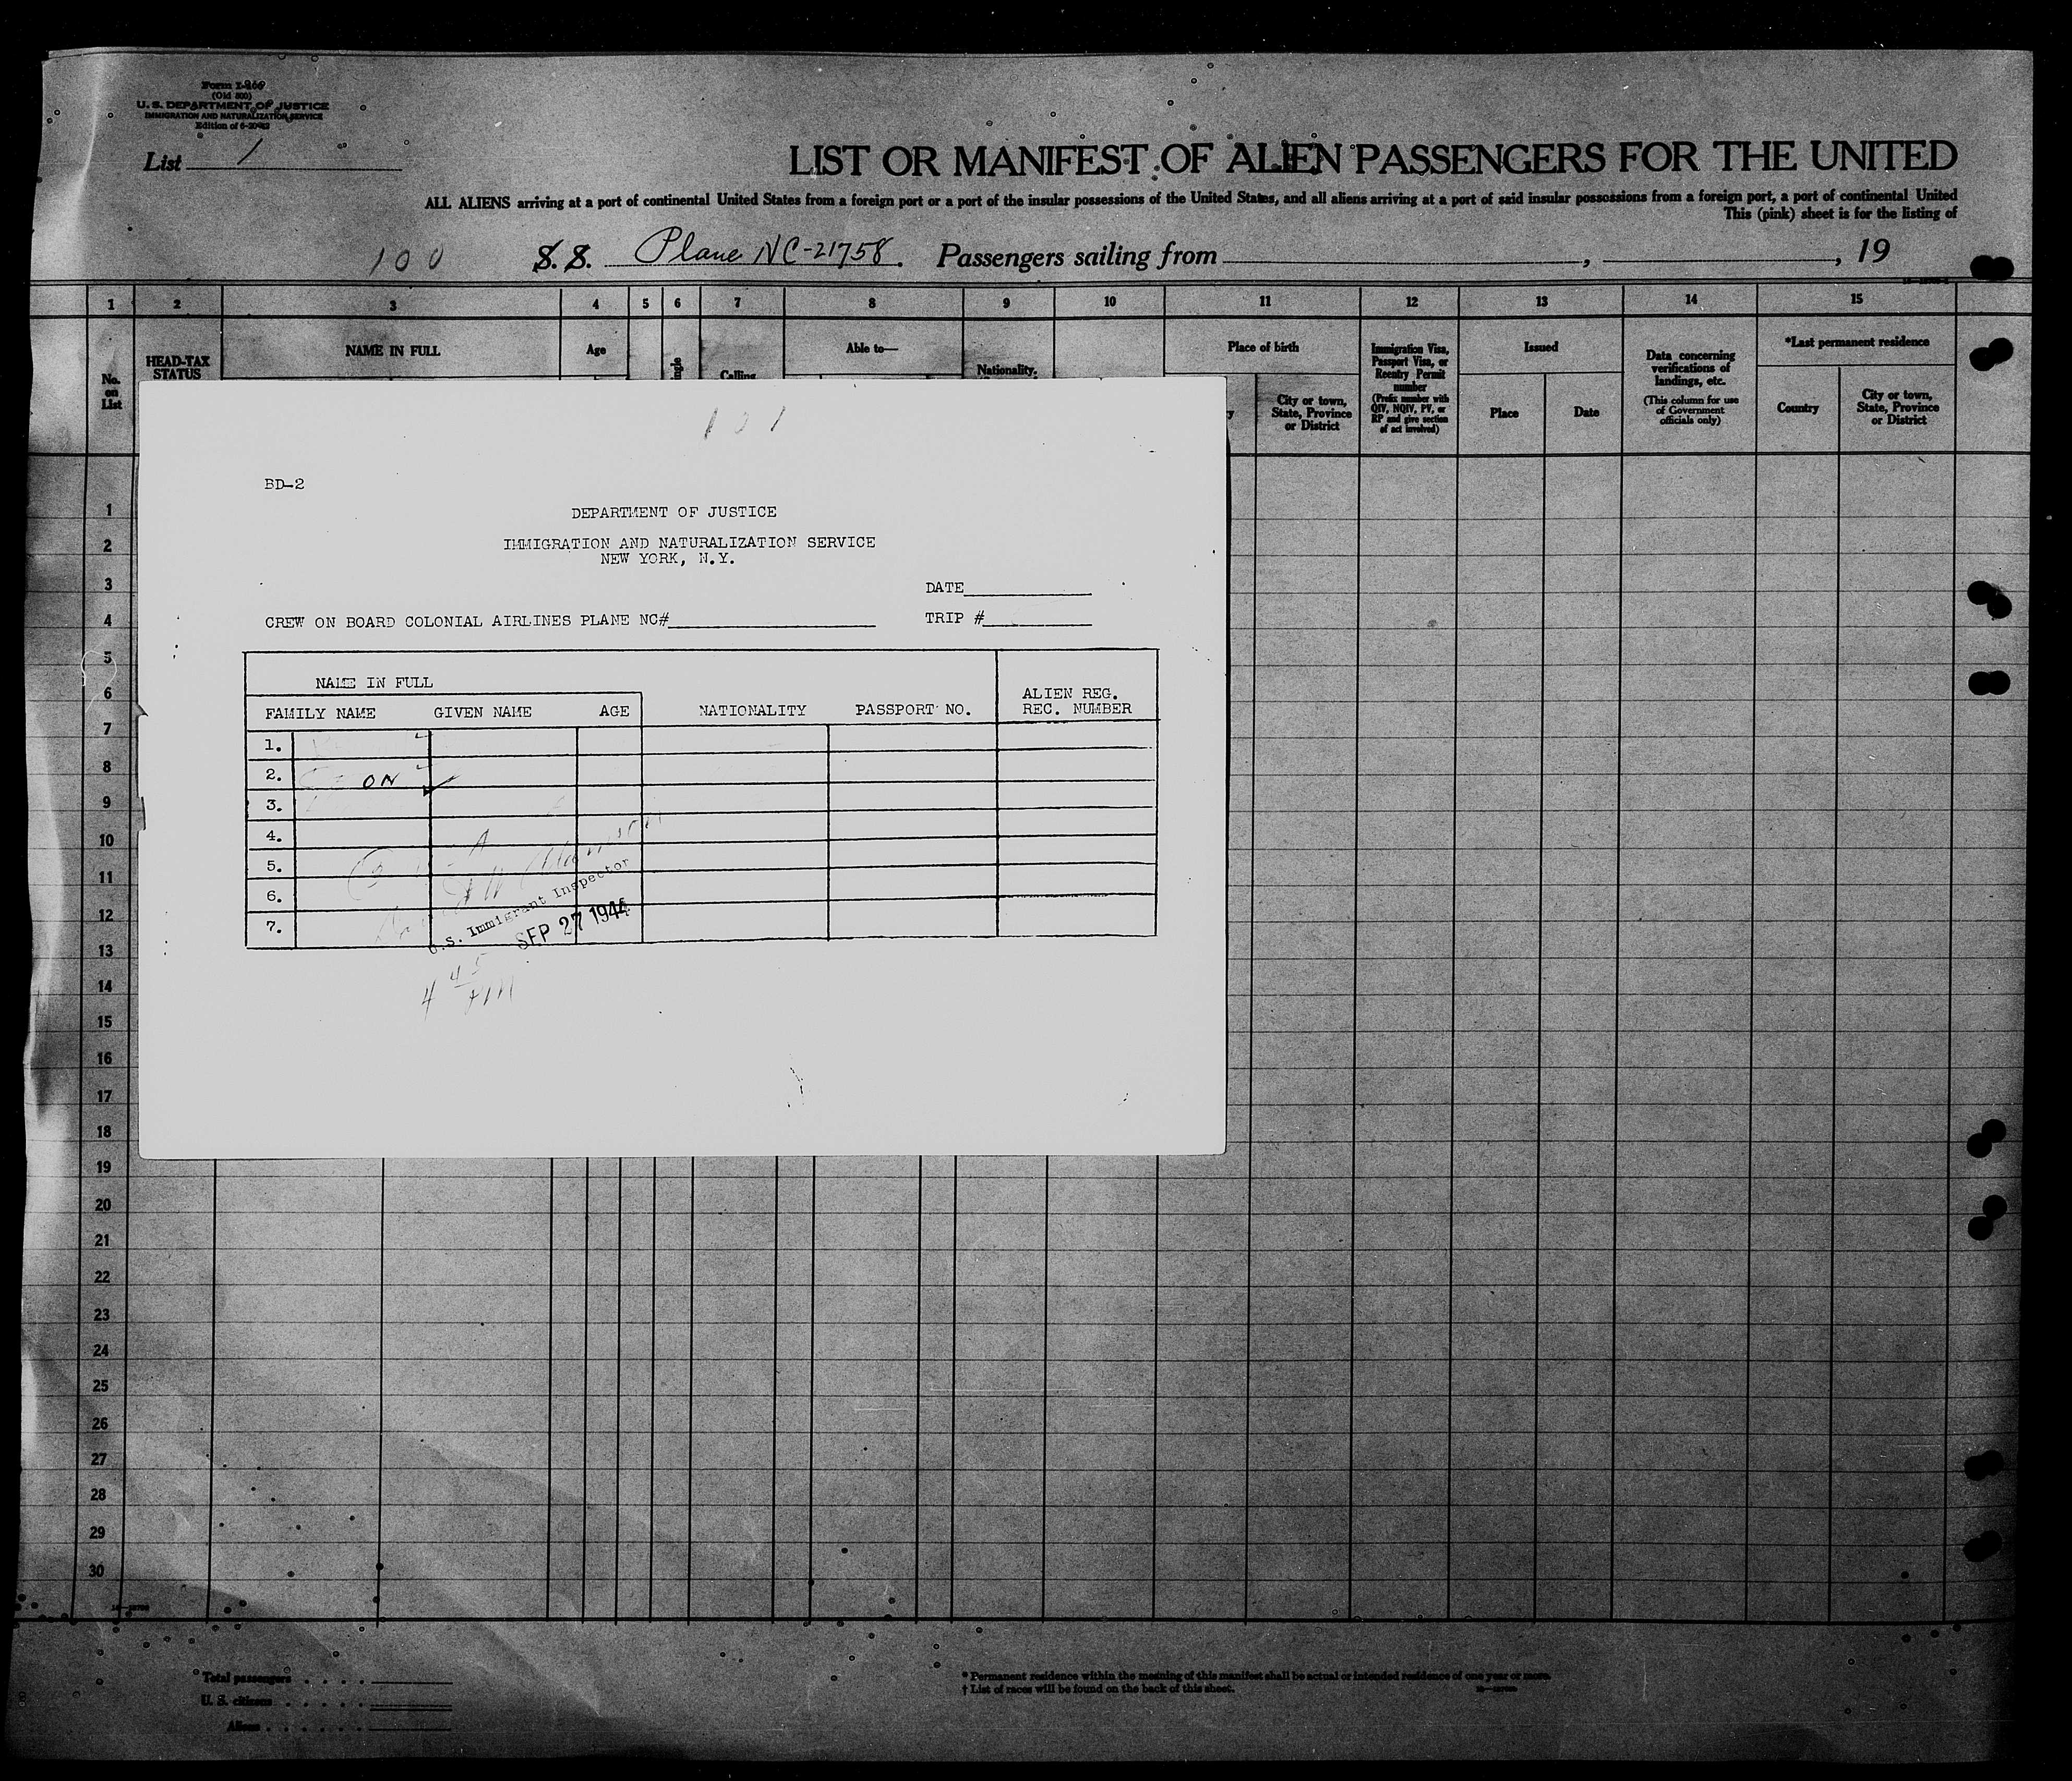 Form I-
(Old 500)
U. S. DEPARTMENT OF JUSTICE
IMMIGRATION AND NATURALIZATION SERVICE
Edition of
List 1
LIST OR MANIFEST OF ALIEN PASSENGERS FOR THE UNITED
ALL ALIENS arriving at a port of continental United States from a foreign port or a port of the insular possessions of the United States, and all aliens arriving at a port of said insular possessions from a foreign port, a port of continental United
This (pink) sheet is for the listing of
100 S. S. Plane NC-21758. Passengers sailing from , , 19
1 2 3 4 5 6 7 8 9 10 11 12 13 14 15
HEAD-TAX STATUS
NAME IN FULL
Age
Calling
Able to—
Nationality.
Place of birth
Immigration Visa, Passport Visa, or Reentry Permit number
(Prefix number with QIV, NQIV, PV, or RP and give section of act involved)
Issued
Data concerning verifications of landings, etc.
(This column for use of Government officials only)
*Last permanent residence
No. on List
City or town, State, Province or District
Place
Date
Country
City or town, State, Province or District
101
BD-2
DEPARTMENT OF JUSTICE
IMMIGRATION AND NATURALIZATION SERVICE
NEW YORK, N.Y.
DATE
CREW ON BOARD COLONIAL AIRLINES PLANE NC#
TRIP #
NAME IN FULL
FAMILY NAME GIVEN NAME AGE NATIONALITY PASSPORT NO. ALIEN REG. REC. NUMBER
1.
2. ON
3.
4.
5.
6.
7.
U.S. Immigrant Inspector
SEP 27 1944
4 45 PM
1
2
3
4
5
6
7
8
9
10
11
12
13
14
15
16
17
18
19
20
21
22
23
24
25
26
27
28
29
30
Total passengers
U. S. citizens
Aliens
* Permanent residence within the meaning of this manifest shall be actual or intended residence of one year or more.
† List of races will be found on the back of this sheet.